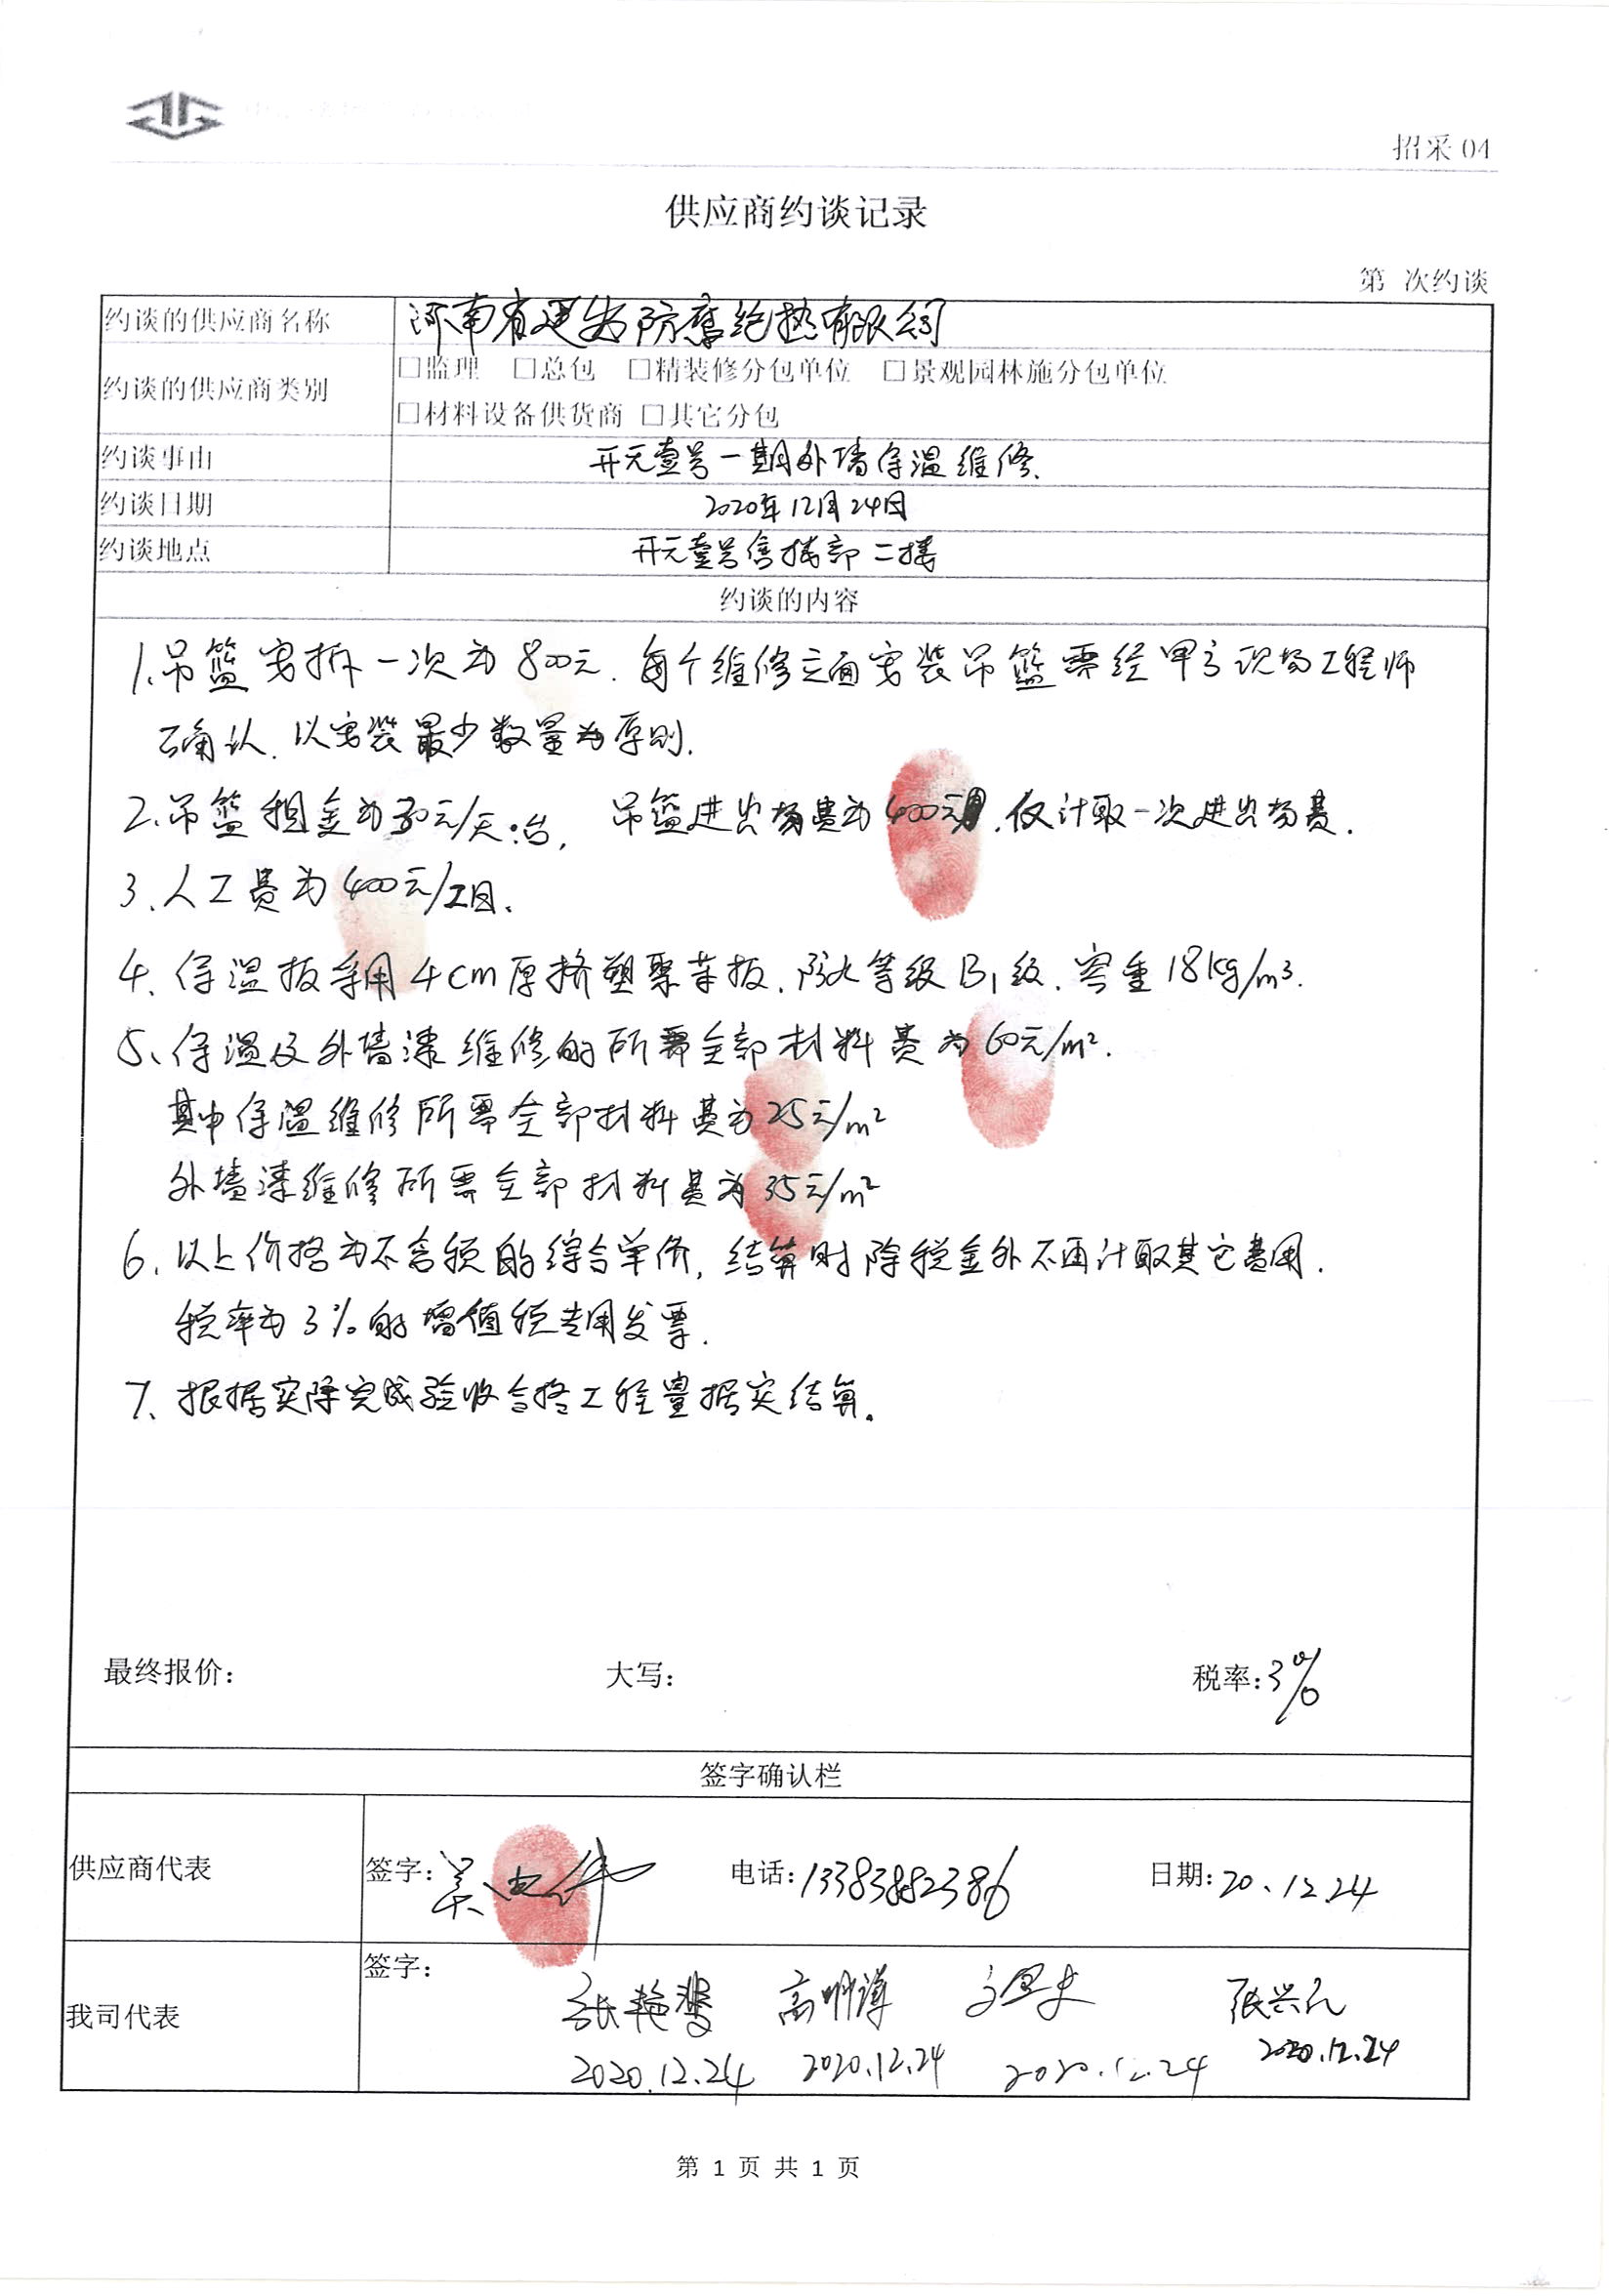 招采 04
供应商约谈记录
第 次约谈
约谈的供应商名称 河南省建安防腐绝热有限公司
约谈的供应商类别 □监理 □总包 □精装修分包单位 □景观园林施分包单位
□材料设备供货商 □其它分包
约谈事由 开元壹号一期外墙保温维修、
约谈日期 2020年12月24日
约谈地点 开元壹号售楼部二楼
约谈的内容
1、吊篮安拆一次为800元.每个维修立面安装吊篮需经甲方现场工程师
确认.以安装最少数量为原则.
2、吊篮租金为30元/天·台, 吊篮进出场费为400元.仅计取一次进出场费.
3、人工费为400元/工日.
4、保温板采用4cm厚挤塑聚苯板.防火等级B1级.容重18kg/m³.
5、保温及外墙漆维修的所需全部材料费为60元/m².
其中保温维修所需全部材料费为25元/m²
外墙漆维修所需全部材料费为35元/m²
6、以上价格为不含税的综合单价,结算时除税金外不再计取其它费用.
税率为3%的增值税专用发票.
7、根据实际完成验收合格工程量据实结算。
最终报价: 大写: 税率:3%
签字确认栏
供应商代表 签字: 电话:13383882386 日期:20.12.24
我司代表 签字:
张艳斐 高明谭 张兴
2020.12.24 2020.12.24 2020.12.24 2020.12.24
第 1 页 共 1 页